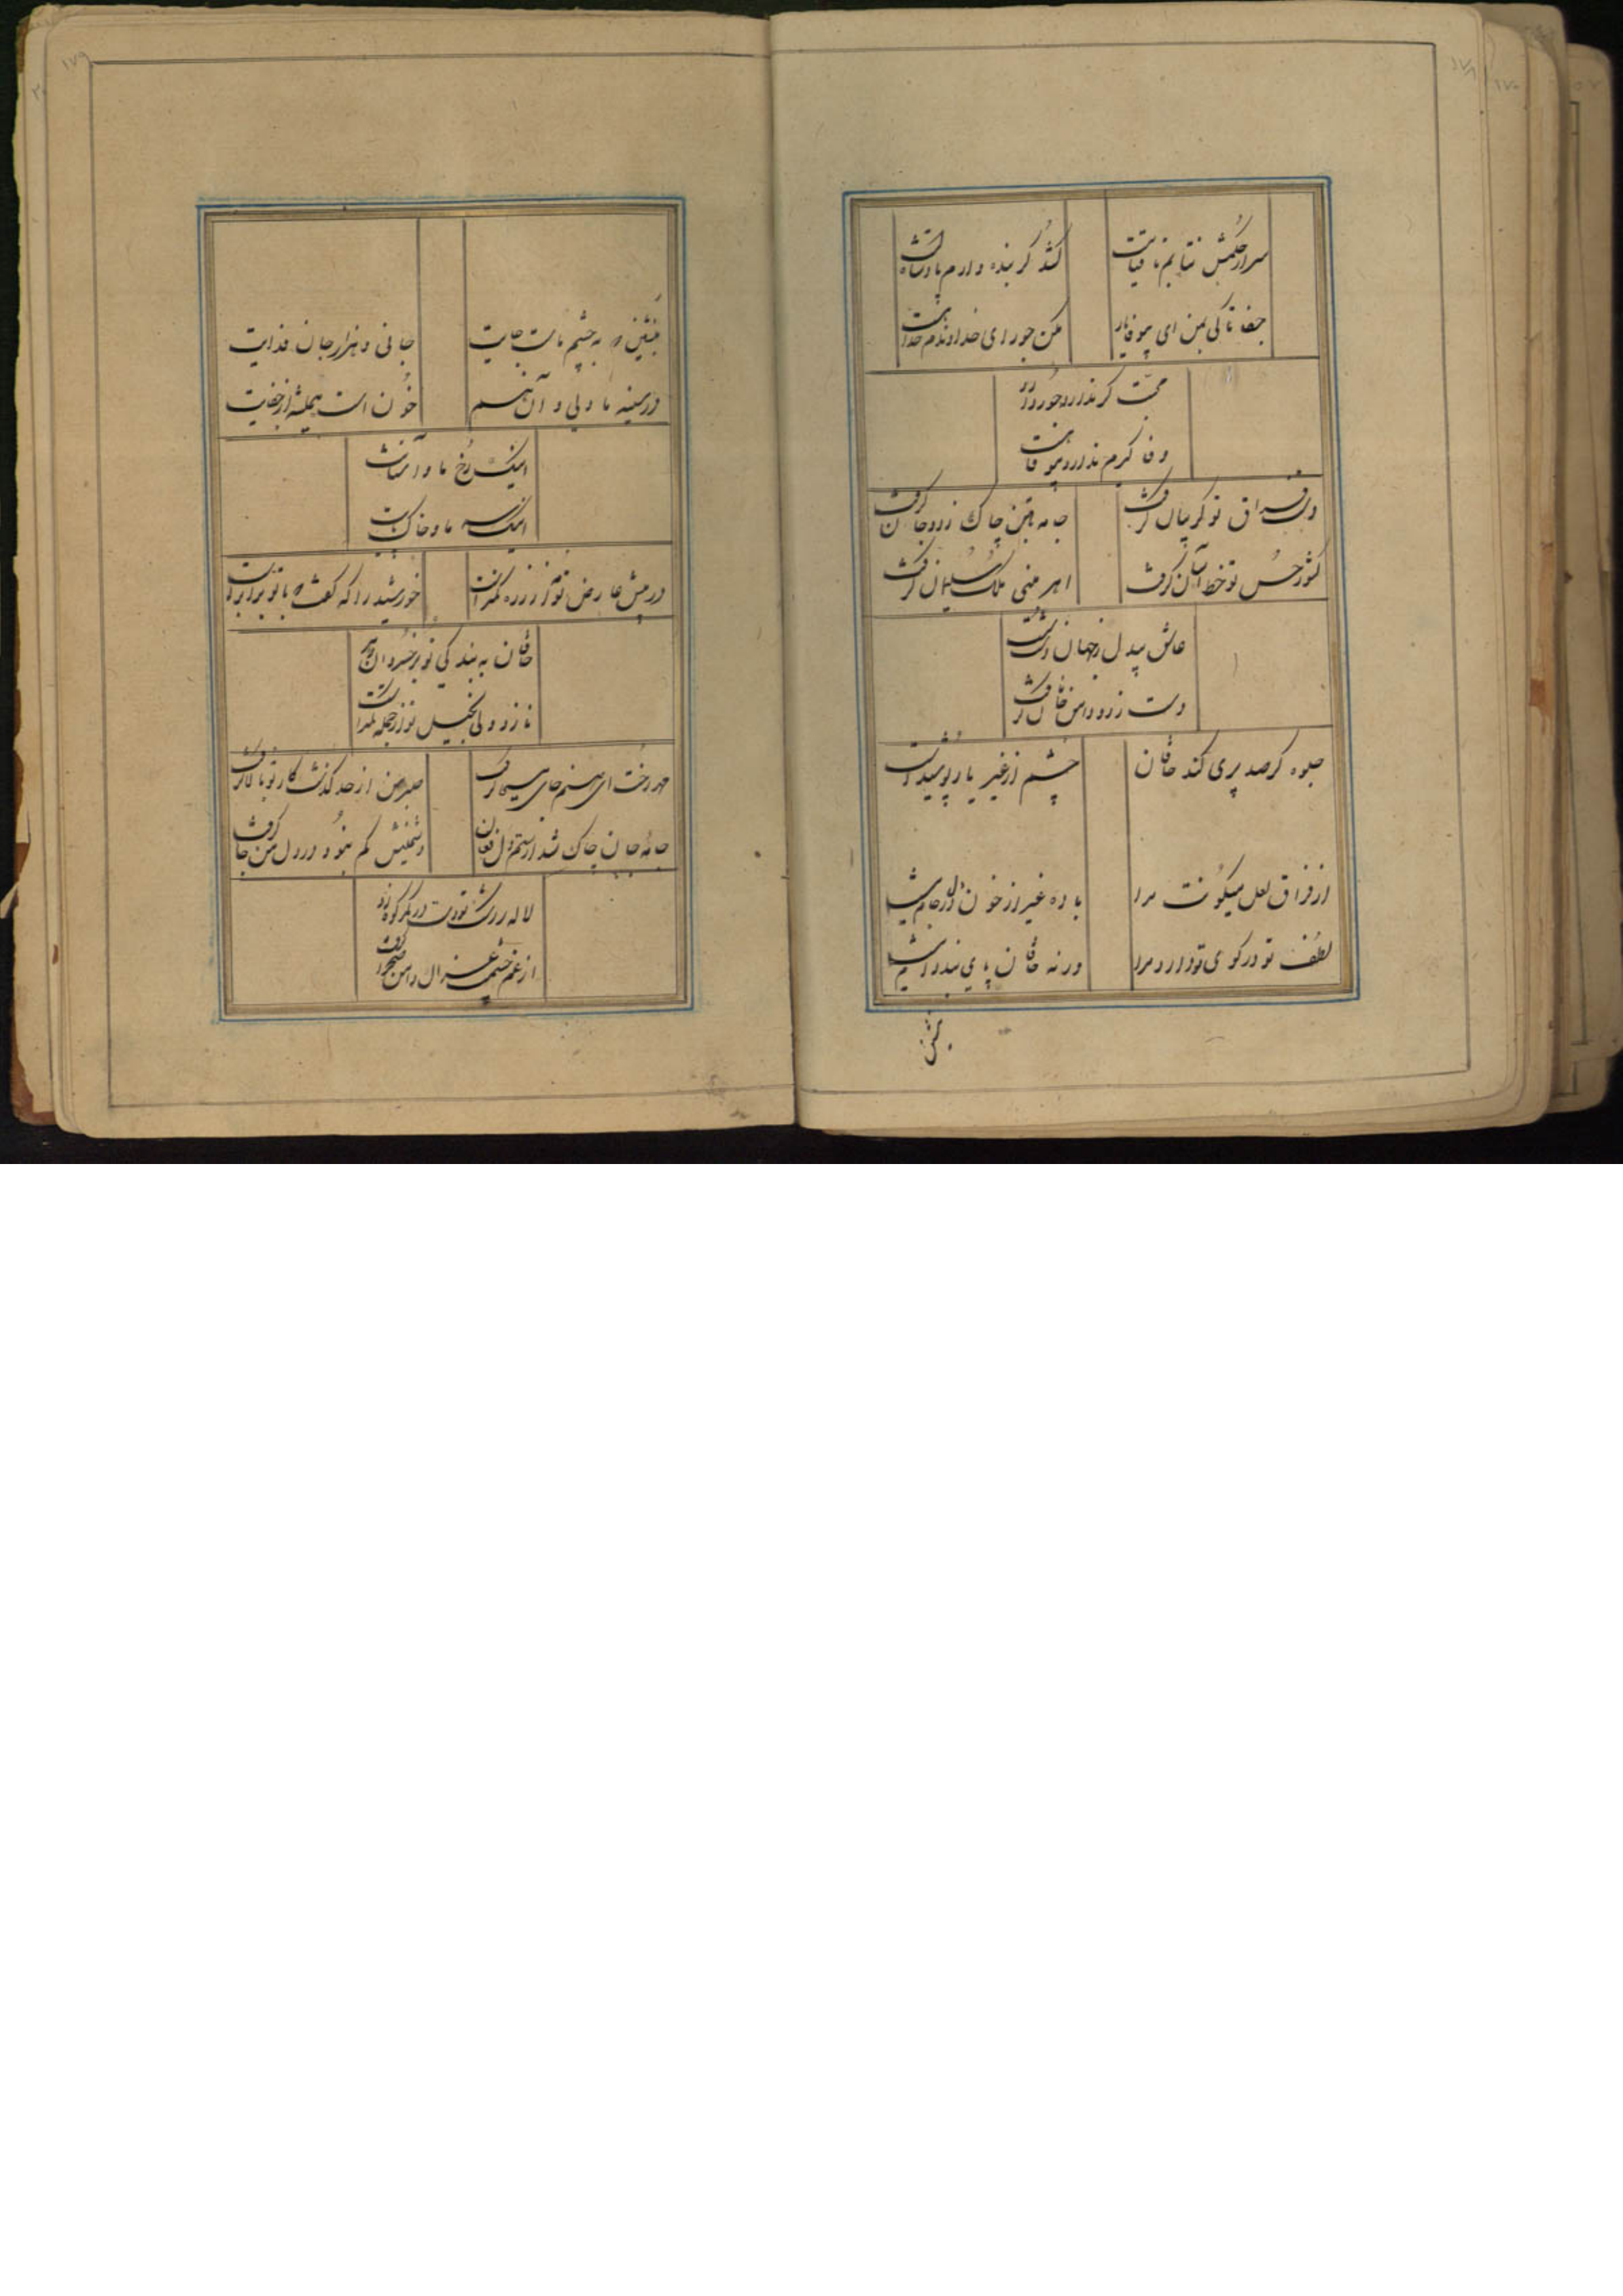 سر از حکمش نتابم تا قیامت
کشد گر بنده وارم پادشاهست
جفا تا کی بمن ای بیوفا یار
مکن جور ای خداوندم خدا هست
محبت گر ندارد جور دارد
وفا گر هم ندارد بیوفا هست
دست فراق تو گریبان گرفت
جامه بتن چاک زد و جان گرفت
کشور حسن تو خط آسان گرفت
اهرمنی ملک سلیمان گرفت
عاشق بیدل ز جهان دست
دست زد و دامن خاقان گرفت
جلوه گر صد پری کند خاقان
چشم از غیر یار پوشیده است
از فراق لعل میگونت مرا
باده غیر از خون دل در جام نیست
لطف تو در کوی تو دارد مرا
ورنه خاقان پای بند دام نیست
بنشین
بنشین که به چشم ماست جایت
جانی و هزار جان فدایت
در سینه ما دلی و آن هم
خون است همیشه از جفایت
اینک رخ ما و آستانت
اینک سر ما و خاک پایت
در پیش عارض تو از ذره کمتر است
خورشید را که گفت که با تو برابر است
خاقان به بندگی تو بر خسروان دهر
نازد ولی بخیل تو از جمله کمتر است
مهر رخت ای صنم جای مسیحا گرفت
صبر من از حد گذشت کار تو بالا گرفت
جامه جان چاک شد از ستم دل فغان
دشمنیش کم نبود در دل من جا گرفت
لاله ز رشک تو دست در کمر کوه زد
از غم چشمت غزال دامن صحرا گرفت